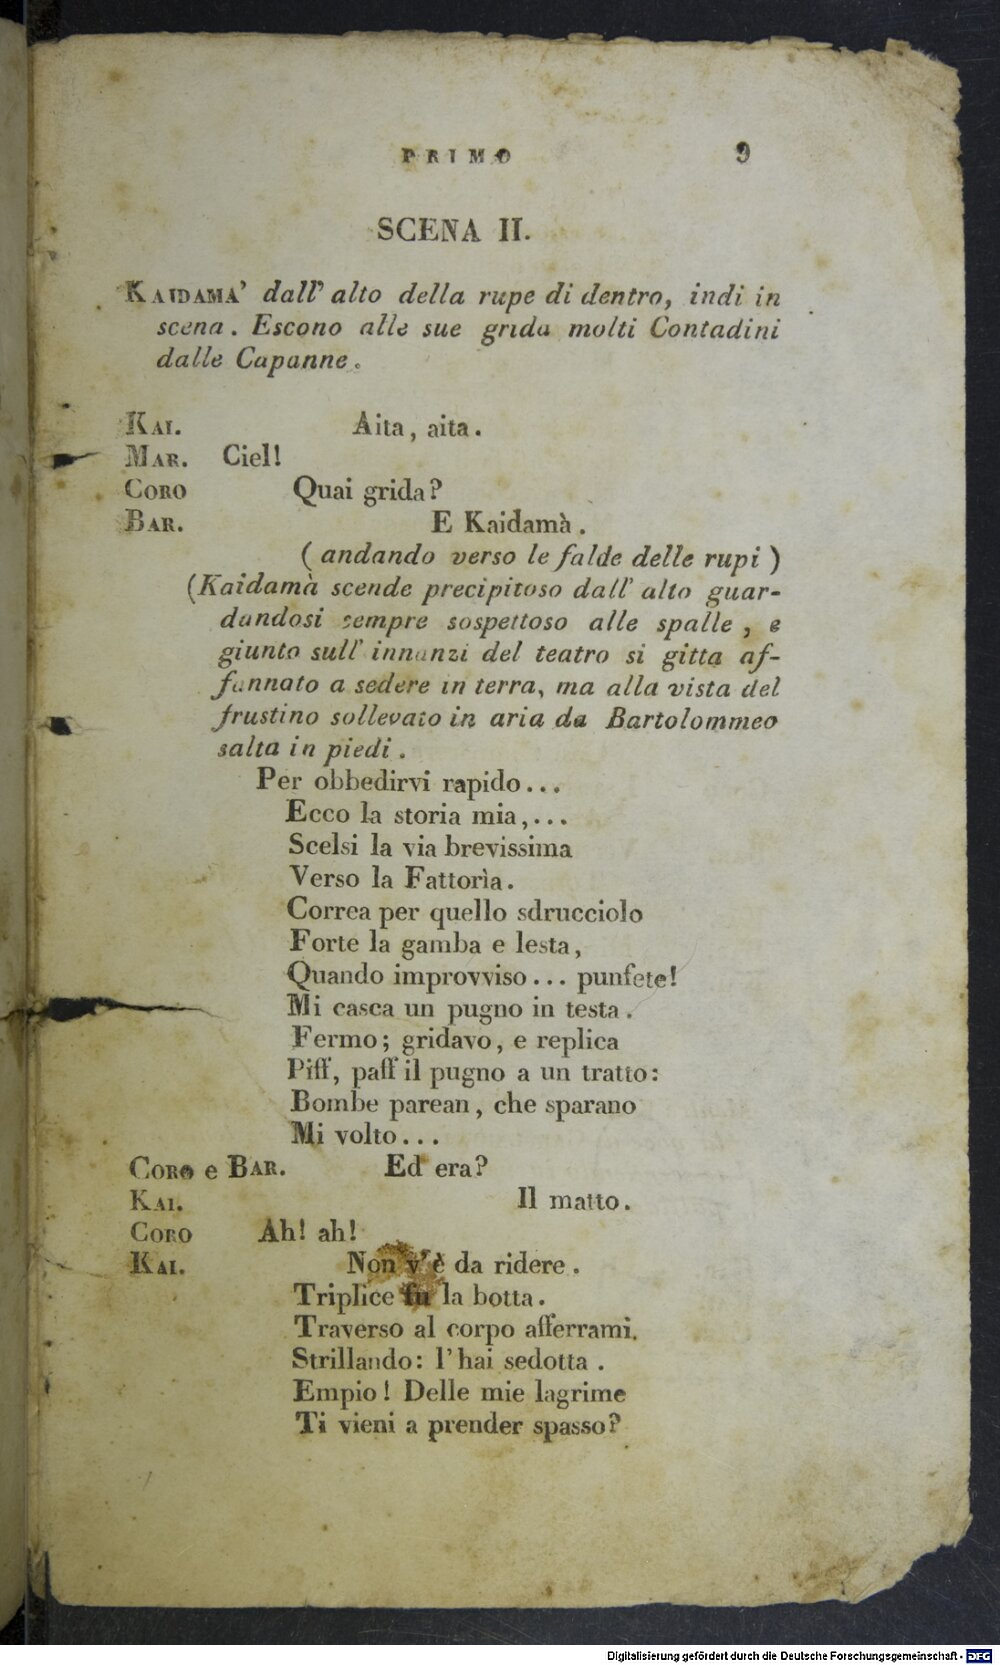 PRIMO 9
SCENA II.
KAIDAMA' dall' alto della rupe di dentro, indi in
scena. Escono alle sue grida molti Contadini
dalle Capanne.
KAI. Aita, aita.
MAR. Ciel!
CORO Quai grida?
BAR. E Kaidamà.
(andando verso le falde delle rupi)
(Kaidamà scende precipitoso dall' alto guar-
dandosi sempre sospettoso alle spalle, e
giunto sull' innanzi del teatro si gitta af-
fannato a sedere in terra, ma alla vista del
frustino sollevato in aria da Bartolommeo
salta in piedi.
Per obbedirvi rapido...
Ecco la storia mia,...
Scelsi la via brevissima
Verso la Fattorìa.
Correa per quello sdrucciolo
Forte la gamba e lesta,
Quando improvviso... punfete!
Mi casca un pugno in testa.
Fermo; gridavo, e replica
Piff, paff il pugno a un tratto:
Bombe parean, che sparano
Mi volto...
CORO e BAR. Ed era?
KAI. Il matto.
CORO Ah! ah!
KAI. Non v'è da ridere.
Triplice fu la botta.
Traverso al corpo afferrami.
Strillando: l'hai sedotta.
Empio! Delle mie lagrime
Ti vieni a prender spasso?
Digitalisierung gefördert durch die Deutsche Forschungsgemeinschaft - DFG